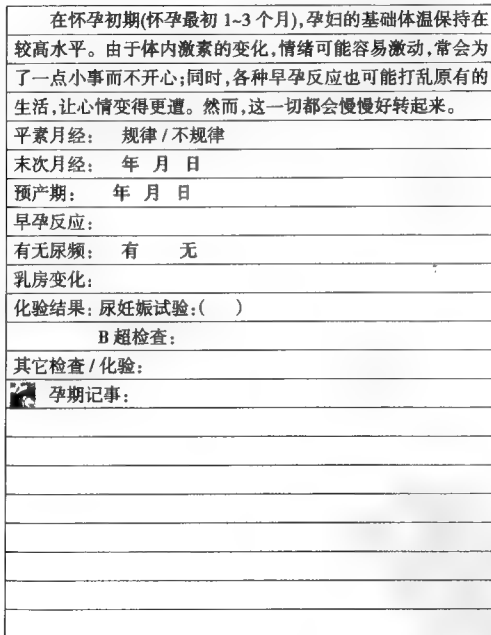 在怀孕初期(怀孕最初 1~3 个月),孕妇的基础体温保持在
较高水平。由于体内激素的变化,情绪可能容易激动,常会为
了一点小事而不开心;同时,各种早孕反应也可能打乱原有的
生活,让心情变得更遭。然而,这一切都会慢慢好转起来。
平素月经: 规律 / 不规律
末次月经: 年 月 日
预产期: 年 月 日
早孕反应:
有无尿频: 有 无
乳房变化:
化验结果: 尿妊娠试验:( )
B 超检查:
其它检查 / 化验:
孕期记事: